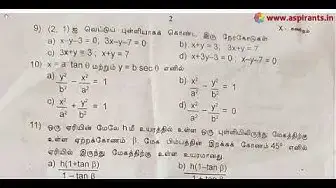 www.aspirants.in
2
9) (2, 1) ஐ வெட்டும் புள்ளியாகக் கொண்ட இரு நேர்கோடுகள்
a) x-y-3=0, 3x-y-7=0 b) x+y=3, 3x+y=7
c) 3x+y=3; x+y=7 d) x+3y-3=0 x-y-7=0
10) x=a tanθ மற்றும் y=b secθ எனில்
a) y²/b² - x²/a² = 1 b) x²/a² - y²/b² = 1
c) x²/a² + y²/b² = 1 d) x²/a² - y²/b² = 0
11) ஒரு ஏரியின் மேலே h மீ உயரத்தில் உள்ள ஒரு புள்ளியிலிருந்து மேகத்திற்கு
உள்ள ஏற்றக்கோணம் β. மேக பிம்பத்தின் இறக்கக் கோணம் 45° எனில்
ஏரியில் இருந்து மேகத்திற்கு உள்ள உயரமானது
a) h(1+tanβ) b) h(1-tanβ)
1-tanβ